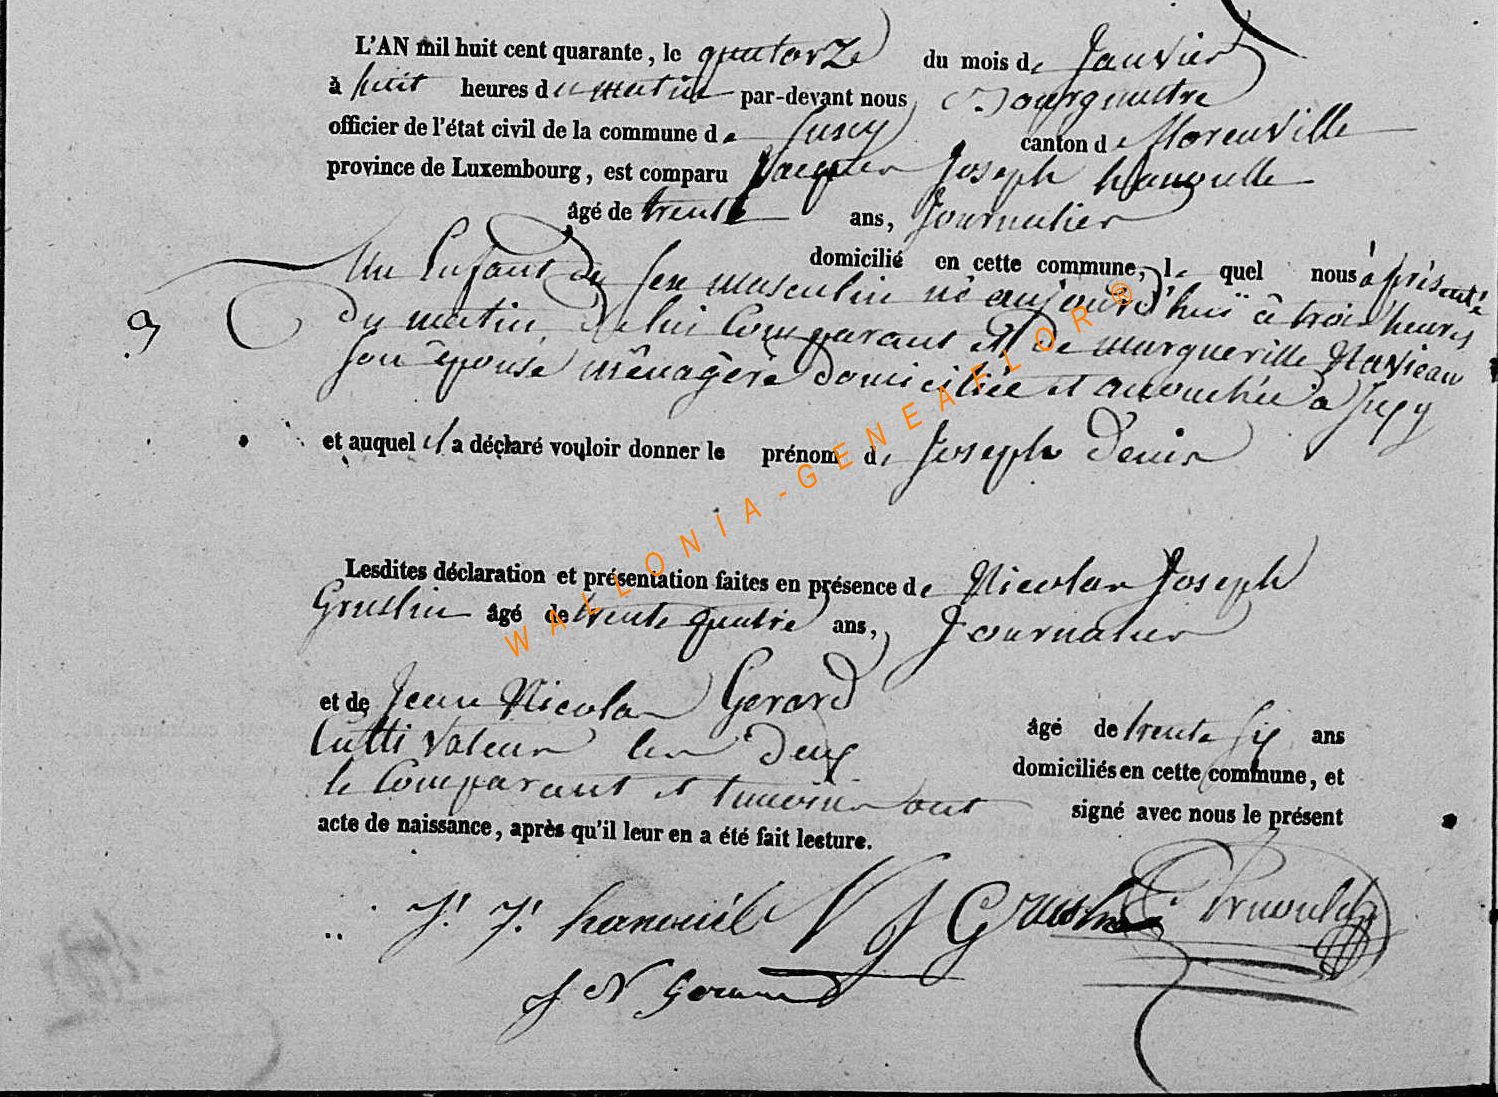 L'AN mil huit cent quarante, le quatorze du mois de Janvier
à huit heures du matin par-devant nous Bourgmestre
officier de l'état civil de la commune de Jusey canton de florenville
province de Luxembourg, est comparu Jacques Joseph hanouille
âgé de trente ans, Journalier
domicilié en cette commune, le quel nous à présenté
Un Enfant du sex masculin né aujourd'hui à trois heures
9 du matin, de lui Comparant et de marguerille Navieau
son épouse ménagère domiciliée et accouchée à Jusey
et auquel il a déclaré vouloir donner le prénom de Joseph Denis
Lesdites déclaration et présentation faites en présence de Nicolas Joseph
Gruslin âgé de trente quatre ans, Journalier
et de Jean Nicolas Gerard âgé de trente six ans
Cultivateur les deux domiciliés en cette commune, et
le Comparant et temoins ont signé avec nous le présent
acte de naissance, après qu'il leur en a été fait lecture.
J. J. hanouille N J Gruslin
J N Gerard
WALLONIA-GENEAFLOR®